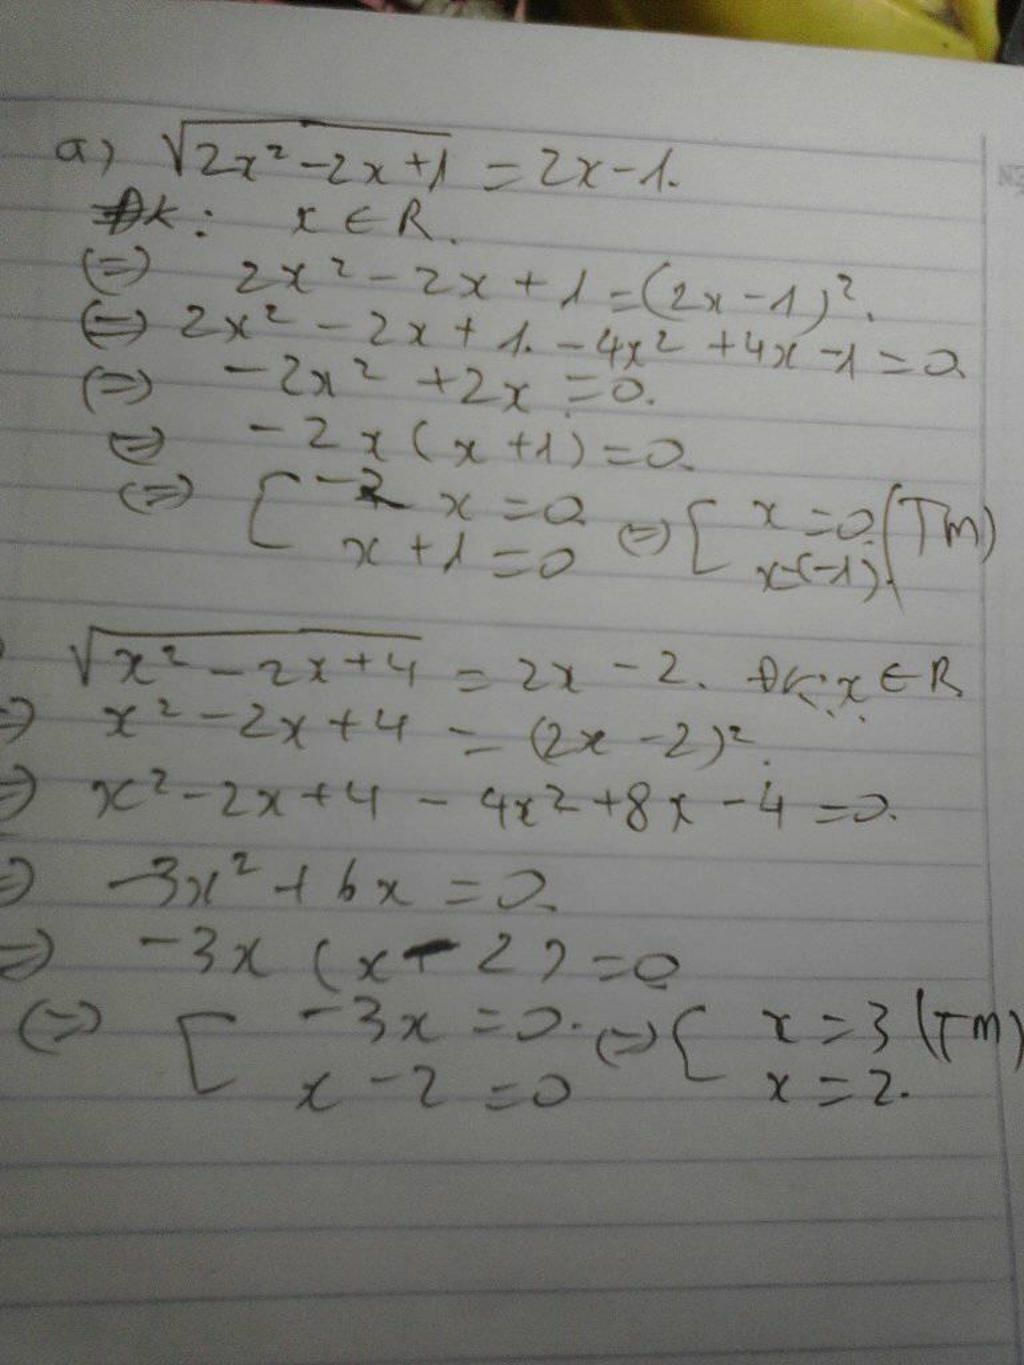 a) √(2x² - 2x + 1) = 2x - 1.
ĐK: x ∈ R.
(=) 2x² - 2x + 1 = (2x - 1)².
(=) 2x² - 2x + 1. - 4x² + 4x - 1 = 0.
(=) - 2x² + 2x = 0.
(=) - 2x (x + 1) = 0.
(=) [ -2 x = 0 (=) [ x = 0. (Tm)
x + 1 = 0 x = (-1).
√(x² - 2x + 4) = 2x - 2. ĐK: x ∈ R
=) x² - 2x + 4 = (2x - 2)².
=) x² - 2x + 4 - 4x² + 8x - 4 = 0.
=) -3x² + 6x = 0.
=) -3x (x - 2) = 0
(=) [ -3x = 0. (=) [ x = 3 (Tm)
x - 2 = 0 x = 2.